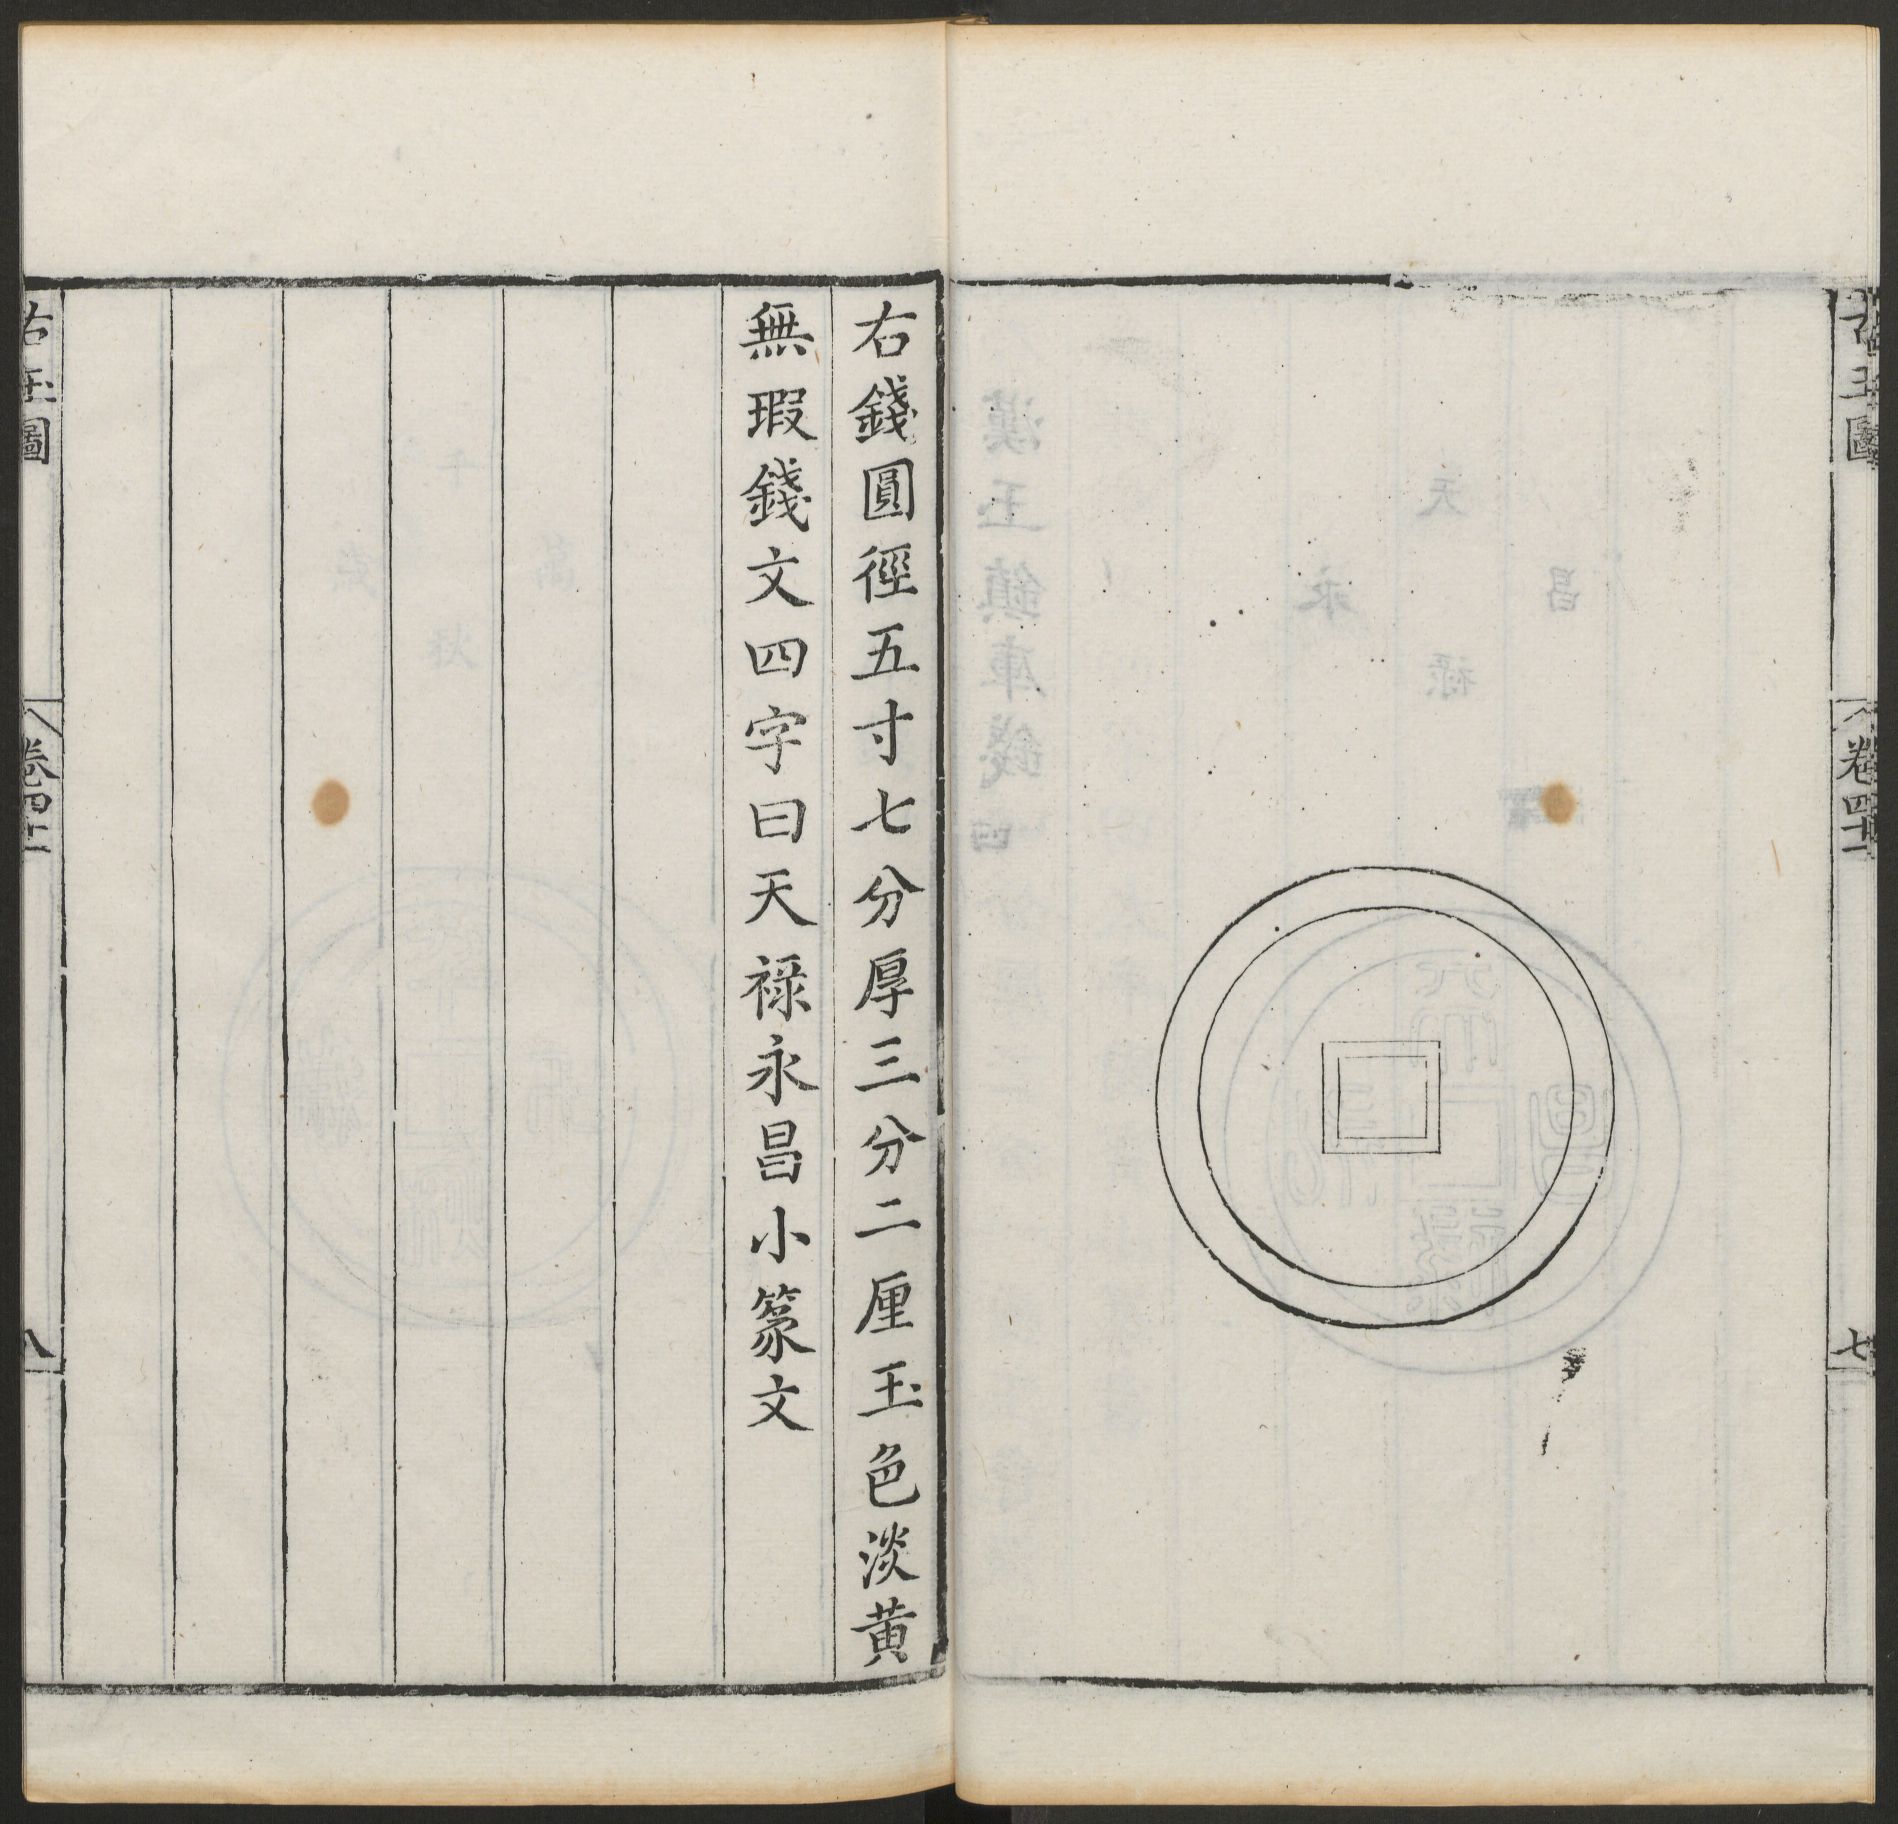 古玉圖
卷四十一
七
右錢圓徑五寸七分厚三分二厘玉色淡黃
無瑕錢文四字曰天祿永昌小篆文
古玉圖
卷四十一
八